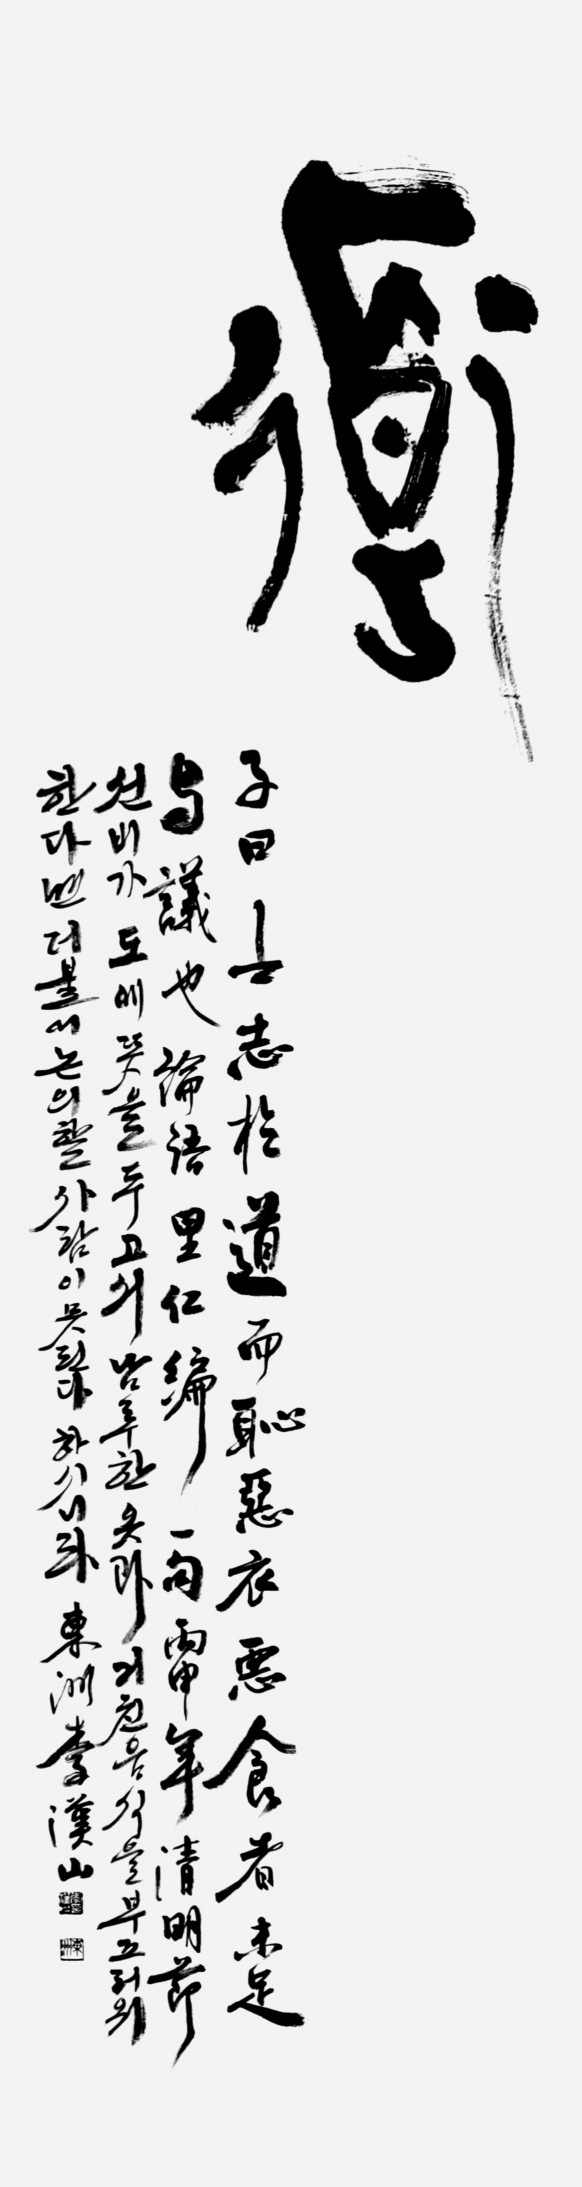 道
子曰士志於道而恥惡衣悪食者未足
与議也 論語里仁編 一句 丙申年 清明節
선비가 도에 뜻을 두고서 남루한 옷과 거친음식을 부끄러워
한다면 더불어 논의할 사람이 못된다 하시니라 東洲 李漢山